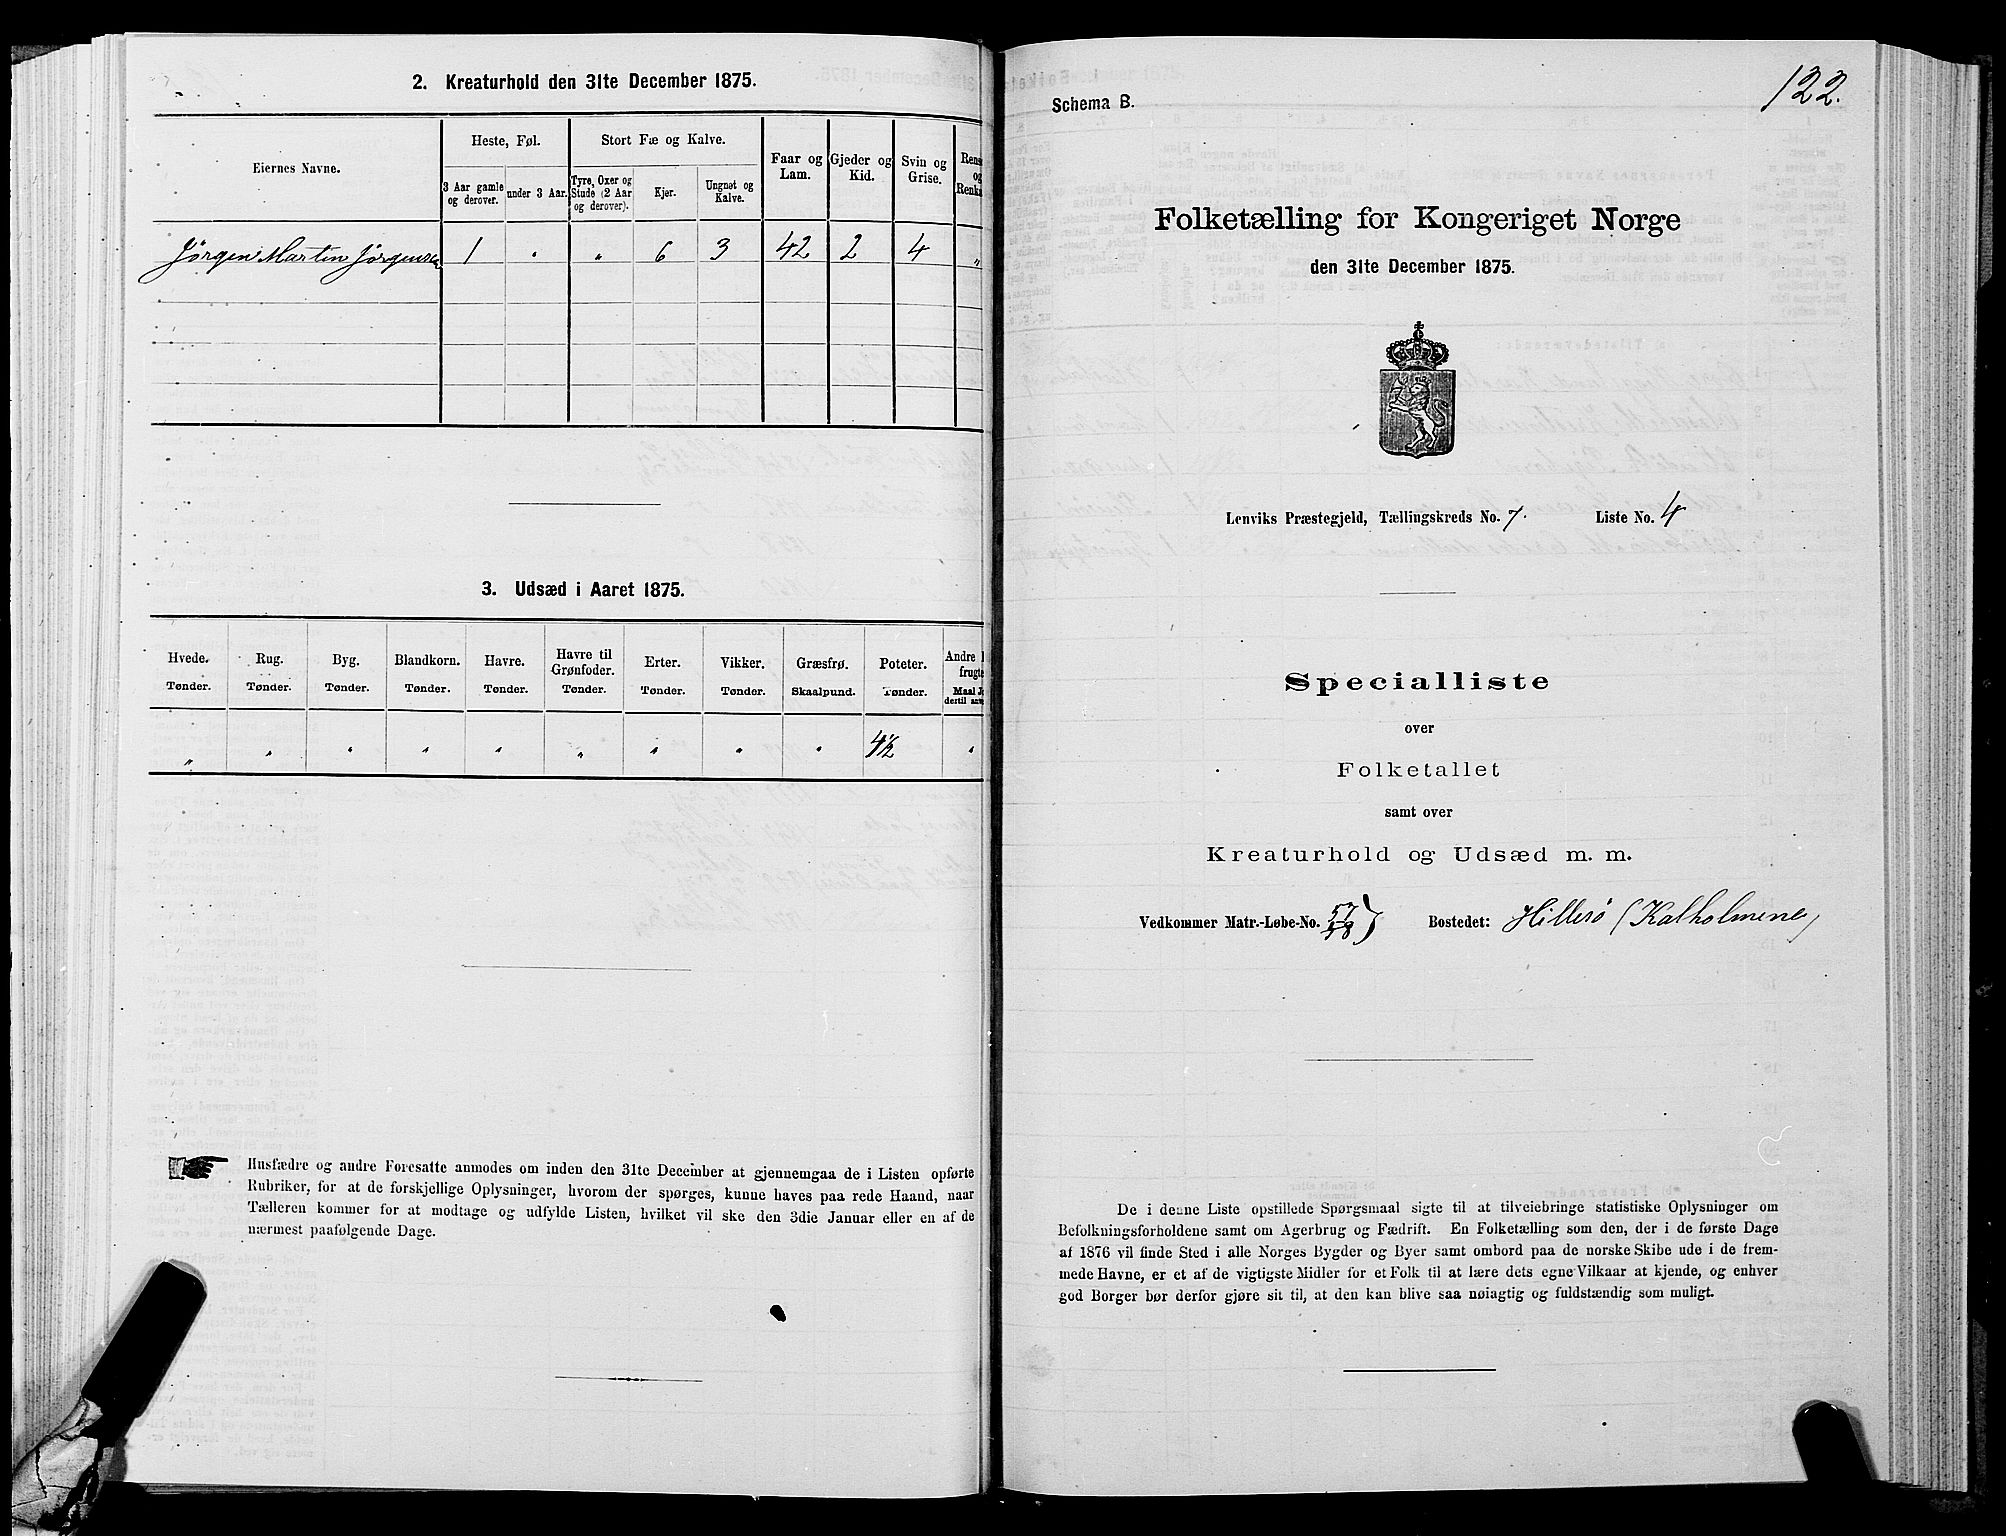 2. Kreaturhold den 31te December 1875.
Eiernes Navne.
Heste, Føl.
Stort Fæ og Kalve.
Faar og Lam.
Gjeder og Kid.
Svin og Grise.
Rens og Renka
3 Aar gamle og derover.
under 3 Aar.
Tyre, Oxer og Stude (2 Aar og derover).
Kjør.
Ungnøt og Kalve.
Jørgen Martin Jørgensen 1 " " 6 3 42 2 4 "
3. Udsæd i Aaret 1875.
Hvede. Rug. Byg. Blandkorn. Havre. Havre til Grønfoder. Erter. Vikker. Græsfrø. Poteter. Andre frugte
Tønder. Tønder. Tønder. Tønder. Tønder. Tønder. Tønder. Tønder. Skaalpund. Tønder. Maal dertil
" " " " " " " " " 4½ "
Husfædre og andre Foresatte anmodes om inden den 31te December at gjennemgaa de i Listen opførte
Rubriker, for at de forskjellige Oplysninger, hvorom der spørges, kunne haves paa rede Haand, naar
Tælleren kommer for at modtage og udfylde Listen, hvilket vil ske den 3die Januar eller en af de
nærmest paafølgende Dage.
122.
Schema B.
Folketælling for Kongeriget Norge
den 31te December 1875.
Lenviks Præstegjeld, Tællingskreds No. 7. Liste No. 4
Specialliste
over
Folketallet
samt over
Kreaturhold og Udsæd m. m.
Vedkommer Matr.-Løbe-No. 57 Bostedet: Hillesø (Kalholmene)
De i denne Liste opstillede Spørgsmaal sigte til at tilveiebringe statistiske Oplysninger om
Befolkningsforholdene samt om Agerbrug og Fædrift. En Folketælling som den, der i de første Dage
af 1876 vil finde Sted i alle Norges Bygder og Byer samt ombord paa de norske Skibe ude i de frem-
mede Havne, er et af de vigtigste Midler for et Folk til at lære dets egne Vilkaar at kjende, og enhver
god Borger bør derfor gjøre sit til, at den kan blive saa nøiagtig og fuldstændig som muligt.